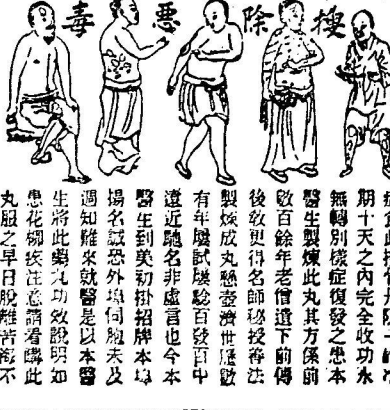 搜除惡毒
期十天之內完全收功永
無轉別樣症復發之患本
醫生製煉此丸其方係前
敵百餘年老僧遺下前傳
後敎更得名師秘授善法
製煉成丸懸壺濟世歷數
有年屢試屢驗百發百中
遠近馳名非虛言也今本
醫生到美初掛招牌本埠
揚名誠恐外埠同胞未及
週知難來就醫是以本醫
生將此藥丸功效說明如
患花柳疾注意請看購此
丸服之早日脫離苦穀不